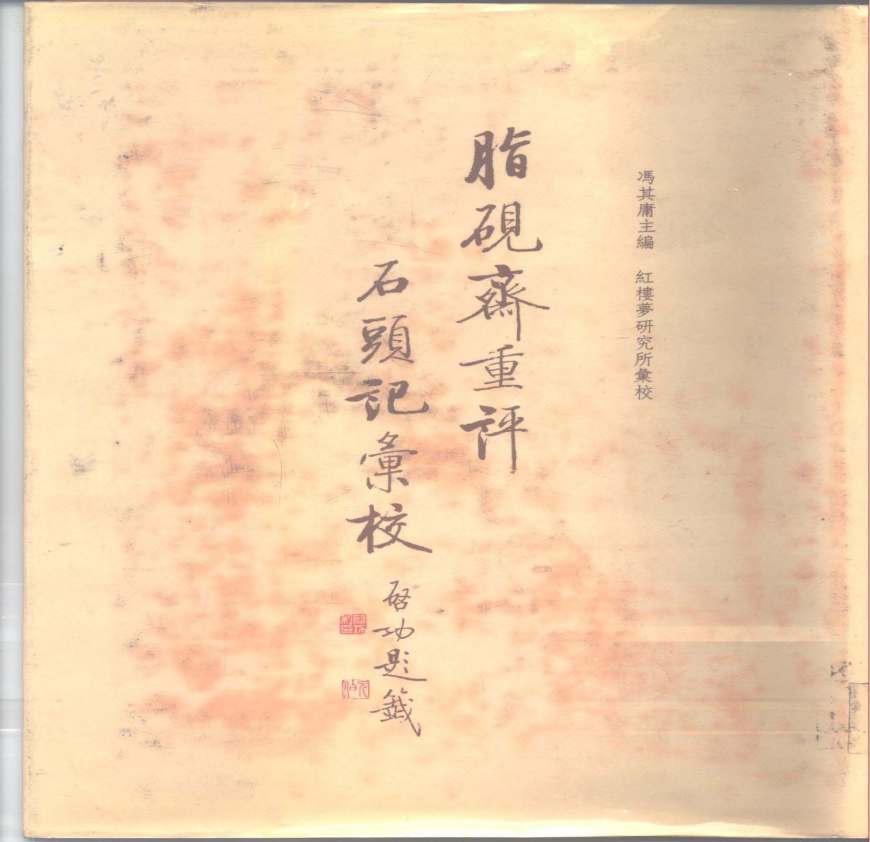 馮其庸主編　紅樓夢研究所彙校
脂硯齋重評
石頭記彙校
啓功題籤